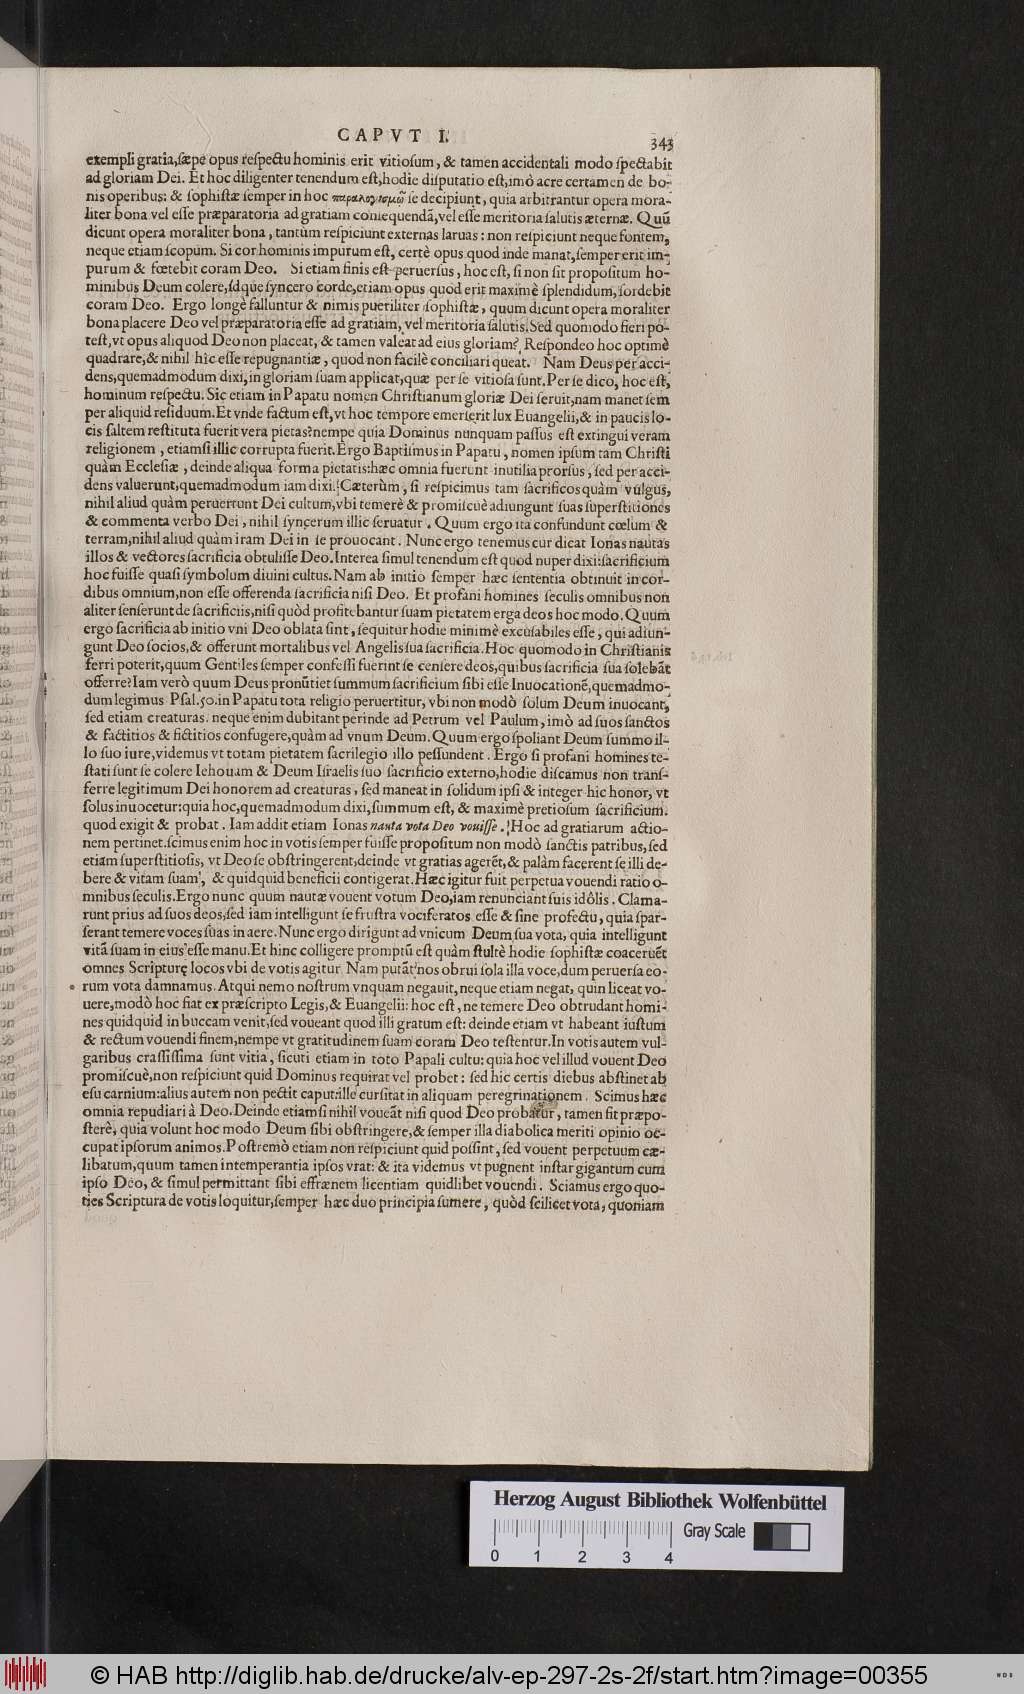 CAPVT I. 343
exempli gratia,ſæpe opus reſpectu hominis erit vitioſum, & tamen accidentali modo ſpectabit
ad gloriam Dei. Et hoc diligenter tenendum eſt,hodie diſputatio eſt,imò acre certamen de bo-
nis operibus: & ſophiſtæ ſemper in hoc παραλογισμῶ ſe decipiunt, quia arbitrantur opera mora-
liter bona vel eſſe præparatoria ad gratiam conſequendã,vel eſſe meritoria ſalutis æternæ. Quũ
dicunt opera moraliter bona, tantùm reſpiciunt externas laruas: non reſpiciunt neque fontem,
neque etiam ſcopum. Si cor hominis impurum eſt, certè opus quod inde manat,ſemper erit im-
purum & fœtebit coram Deo. Si etiam finis eſt peruerſus, hoc eſt, ſi non ſit propoſitum ho-
minibus Deum colere,idque ſyncero corde,etiam opus quod erit maximè ſplendidum,ſordebit
coram Deo. Ergo longè falluntur & nimis pueriliter ſophiſtæ, quum dicunt opera moraliter
bona placere Deo vel præparatoria eſſe ad gratiam, vel meritoria ſalutis. Sed quomodo fieri po-
teſt,vt opus aliquod Deo non placeat, & tamen valeat ad eius gloriam? Reſpondeo hoc optimè
quadrare,& nihil hîc eſſe repugnantiæ, quod non facilè conciliari queat. Nam Deus per acci-
dens,quemadmodum dixi,in gloriam ſuam applicat,quæ per ſe vitioſa ſunt. Per ſe dico, hoc eſt,
hominum reſpectu. Sic etiam in Papatu nomen Chriſtianum gloriæ Dei ſeruit,nam manet ſem
per aliquid reſiduum. Et vnde factum eſt,vt hoc tempore emerſerit lux Euangelii,& in paucis lo-
cis ſaltem reſtituta fuerit vera pietas?nempe quia Dominus nunquam paſſus eſt extingui veram
religionem, etiamſi illic corrupta fuerit. Ergo Baptiſmus in Papatu, nomen ipſum tam Chriſti
quàm Eccleſiæ, deinde aliqua forma pietatis:hæc omnia fuerunt inutilia prorſus, ſed per acci-
dens valuerunt,quemadmodum iam dixi. Cæterùm, ſi reſpicimus tam ſacrificos quàm vulgus,
nihil aliud quàm peruerrunt Dei cultum,vbi temerè & promiſcuè adiungunt ſuas ſuperſtitiones
& commenta verbo Dei, nihil ſyncerum illic ſeruatur. Quum ergo ita confundunt cœlum &
terram,nihil aliud quàm iram Dei in ſe prouocant. Nunc ergo tenemus cur dicat Ionas nautas
illos & vectores ſacrificia obtuliſſe Deo. Interea ſimul tenendum eſt quod nuper dixi:ſacrificium
hoc fuiſſe quaſi ſymbolum diuini cultus. Nam ab initio ſemper hæc ſententia obtinuit in cor-
dibus omnium,non eſſe offerenda ſacrificia niſi Deo. Et profani homines ſeculis omnibus non
aliter ſenſerunt de ſacrificiis,niſi quòd profitebantur ſuam pietatem erga deos hoc modo. Quum
ergo ſacrificia ab initio vni Deo oblata ſint, ſequitur hodie minimè excuſabiles eſſe, qui adiun-
gunt Deo ſocios,& offerunt mortalibus vel Angelis ſua ſacrificia. Hoc quomodo in Chriſtianis
ferri poterit,quum Gentiles ſemper confeſſi fuerint ſe cenſere deos,quibus ſacrificia ſua ſolebãt
offerre?Iam verò quum Deus pronũtiet ſummum ſacrificium ſibi eſſe Inuocationẽ,quemadmo-
dum legimus Pſal.50.in Papatu tota religio peruertitur, vbi non modò ſolum Deum inuocant,
ſed etiam creaturas. neque enim dubitant perinde ad Petrum vel Paulum, imò ad ſuos ſanctos
& factitios & fictitios confugere,quàm ad vnum Deum. Quum ergo ſpoliant Deum ſummo il-
lo ſuo iure,videmus vt totam pietatem ſacrilegio illo peſſundent. Ergo ſi profani homines te-
ſtati ſunt ſe colere Iehouam & Deum Iſraelis ſuo ſacrificio externo,hodie diſcamus non tranſ-
ferre legitimum Dei honorem ad creaturas, ſed maneat in ſolidum ipſi & integer hic honor, vt
ſolus inuocetur:quia hoc,quemadmodum dixi,ſummum eſt, & maximè pretioſum ſacrificium.
quod exigit & probat. Iam addit etiam Ionas nauta vota Deo vouiſſe. Hoc ad gratiarum actio-
nem pertinet.ſcimus enim hoc in votis ſemper fuiſſe propoſitum non modò ſanctis patribus,ſed
etiam ſuperſtitioſis, vt Deo ſe obſtringerent,deinde vt gratias agerẽt,& palàm facerent ſe illi de-
bere & vitam ſuam, & quidquid beneficii contigerat. Hæc igitur fuit perpetua vouendi ratio o-
mnibus ſeculis. Ergo nunc quum nautæ vouent votum Deo,iam renunciant ſuis idôlis. Clama-
runt prius ad ſuos deos,ſed iam intelligunt ſe fruſtra vociferatos eſſe & ſine profectu, quia ſpar-
ſerant temere voces ſuas in aere. Nunc ergo dirigunt ad vnicum Deum ſua vota, quia intelligunt
vitã ſuam in eius eſſe manu. Et hinc colligere promptũ eſt quàm ſtultè hodie ſophiſtæ coaceruẽt
omnes Scripturę locos vbi de votis agitur Nam putãt nos obrui ſola illa voce,dum peruerſa eo-
rum vota damnamus. Atqui nemo noſtrum vnquam negauit, neque etiam negat, quin liceat vo-
uere,modò hoc fiat ex præſcripto Legis,& Euangelii: hoc eſt, ne temere Deo obtrudant homi-
nes quidquid in buccam venit,ſed voueant quod illi gratum eſt: deinde etiam vt habeant iuſtum
& rectum vouendi finem,nempe vt gratitudinem ſuam coram Deo teſtentur. In votis autem vul-
garibus craſſiſſima ſunt vitia, ſicuti etiam in toto Papali cultu: quia hoc vel illud vouent Deo
promiſcuè,non reſpiciunt quid Dominus requirat vel probet: ſed hic certis diebus abſtinet ab
eſu carnium:alius autem non pectit caput:ille curſitat in aliquam peregrinationem. Scimus hæc
omnia repudiari à Deo. Deinde etiamſi nihil voueãt niſi quod Deo probatur, tamen fit præpo-
ſterè, quia volunt hoc modo Deum ſibi obſtringere,& ſemper illa diabolica meriti opinio oc-
cupat ipſorum animos. Poſtremò etiam non reſpiciunt quid poſſint, ſed vouent perpetuum cæ-
libatum,quum tamen intemperantia ipſos vrat: & ita videmus vt pugnent inſtar gigantum cum
ipſo Deo, & ſimul permittant ſibi effrænem licentiam quidlibet vouendi. Sciamus ergo quo-
ties Scriptura de votis loquitur,ſemper hæc duo principia ſumere, quòd ſcilicet vota, quoniam
Herzog August Bibliothek Wolfenbüttel
Gray Scale
0 1 2 3 4
© HAB http://diglib.hab.de/drucke/alv-ep-297-2s-2f/start.htm?image=00355